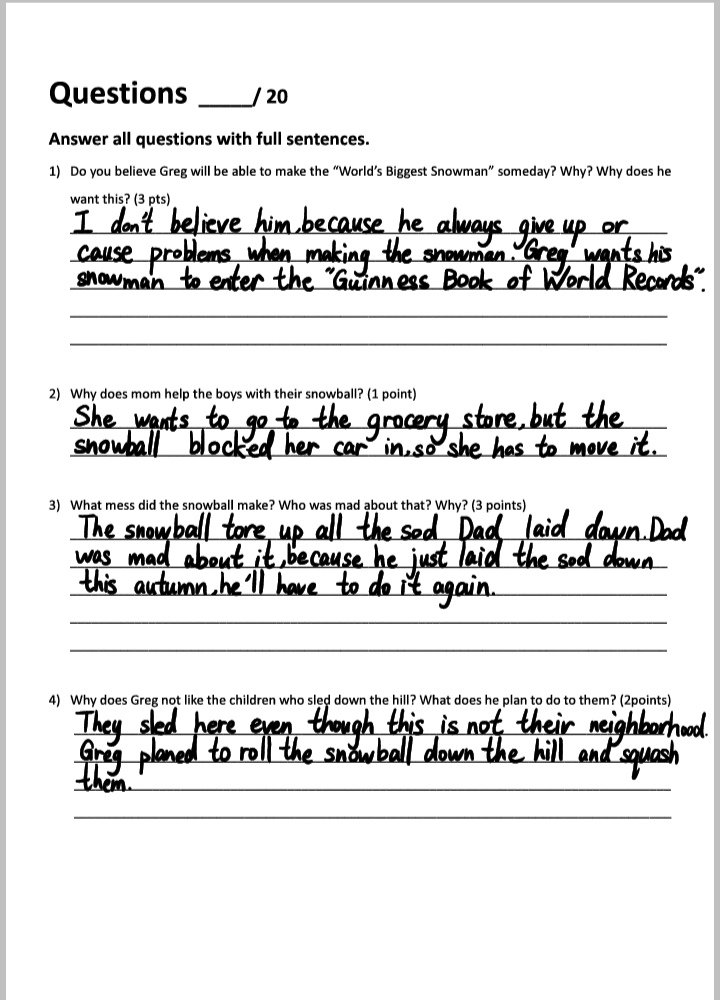 Questions ____/ 20
Answer all questions with full sentences.
1) Do you believe Greg will be able to make the “World’s Biggest Snowman” someday? Why? Why does he
want this? (3 pts)
I don't believe him,because he always give up or
cause problems when making the snowman. Greg wants his
snowman to enter the "Guinness Book of World Records".
2) Why does mom help the boys with their snowball? (1 point)
She wants to go to the grocery store,but the
snowball blocked her car in,so she has to move it.
3) What mess did the snowball make? Who was mad about that? Why? (3 points)
The snowball tore up all the sod Dad laid down.Dad
was mad about it,because he just laid the sod down
this autumn,he'll have to do it again.
4) Why does Greg not like the children who sled down the hill? What does he plan to do to them? (2points)
They sled here even though this is not their neighborhood.
Greg planed to roll the snowball down the hill and squash
them.